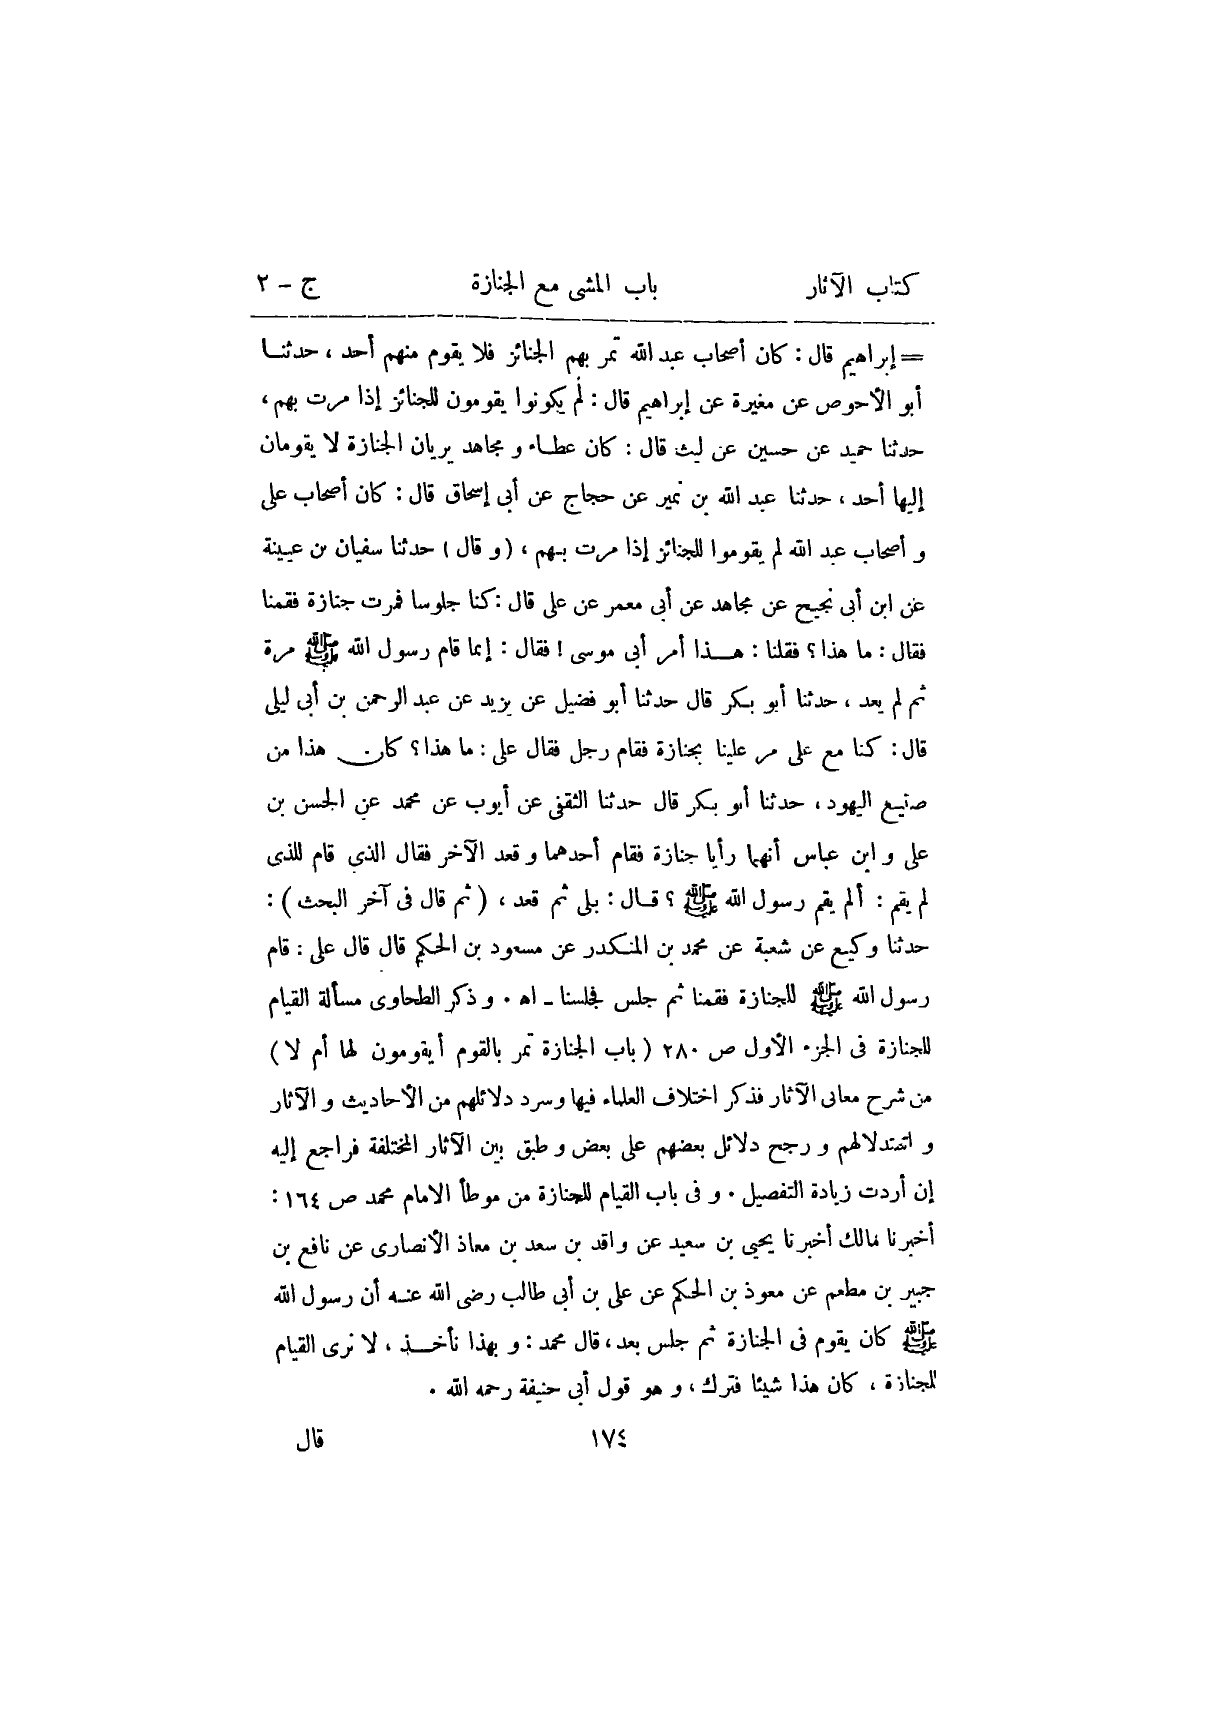 كتاب الآثار باب المشى مع الجنازة ج - ٢
= إبراهيم قال : كان أصحاب عبد الله تمر بهم الجنائز فلا يقوم منهم أحد ، حدثنا
أبو الأحوص عن مغيرة عن إبراهيم قال : لم يكونوا يقومون للجنائز إذا مرت بهم ،
حدثنا حميد عن حسين عن ليث قال : كان عطاء و مجاهد يريان الجنازة لا يقومان
إليها أحد ، حدثنا عبد الله بن نمير عن حجاج عن أبى إسحاق قال : كان أصحاب على
و أصحاب عبد الله لم يقوموا للجنائز إذا مرت بهم ، ( و قال ) حدثنا سفيان بن عيينة
عن ابن أبى نجيح عن مجاهد عن أبى معمر عن على قال : كنا جلوسا فمرت جنازة فقمنا
فقال : ما هذا ؟ فقلنا : هذا أمر أبى موسى ! فقال : إنما قام رسول الله ﷺ مرة
ثم لم يعد ، حدثنا أبو بكر قال حدثنا أبو فضيل عن يزيد عن عبد الرحمن بن أبى ليلى
قال : كنا مع على مر علينا بجنازة فقام رجل فقال على : ما هذا ؟ كان هذا من
صنيع اليهود ، حدثنا أبو بكر قال حدثنا الثقفى عن أيوب عن محمد عن الحسن بن
على و ابن عباس أنهما رأيا جنازة فقام أحدهما و قعد الآخر فقال الذى قام للذى
لم يقم : ألم يقم رسول الله ﷺ ؟ قال : بلى ثم قعد ، ( ثم قال فى آخر البحث ) :
حدثنا وكيع عن شعبة عن محمد بن المنكدر عن مسعود بن الحكم قال قال على : قام
رسول الله ﷺ للجنازة فقمنا ثم جلس فجلسنا - اهـ . و ذكر الطحاوى مسألة القيام
للجنازة فى الجزء الأول ص ٢٨٠ ( باب الجنازة تمر بالقوم أيقومون لها أم لا )
من شرح معانى الآثار فذكر اختلاف العلماء فيها و سرد دلائلهم من الأحاديث و الآثار
و استدلالهم و رجح دلائل بعضهم على بعض و طبق بين الآثار المختلفة فراجع إليه
إن أردت زيادة التفصيل . و فى باب القيام للجنازة من موطأ الامام محمد ص ١٦٤ :
أخبرنا مالك أخبرنا يحيى بن سعيد عن واقد بن سعد بن معاذ الأنصارى عن نافع بن
جبير بن مطعم عن معوذ بن الحكم عن على بن أبى طالب رضى الله عنه أن رسول الله
ﷺ كان يقوم فى الجنازة ثم جلس بعد ، قال محمد : و بهذا نأخذ ، لا نرى القيام
للجنازة ، كان هذا شيئا فترك ، و هو قول أبى حنيفة رحمه الله .
١٧٤ قال